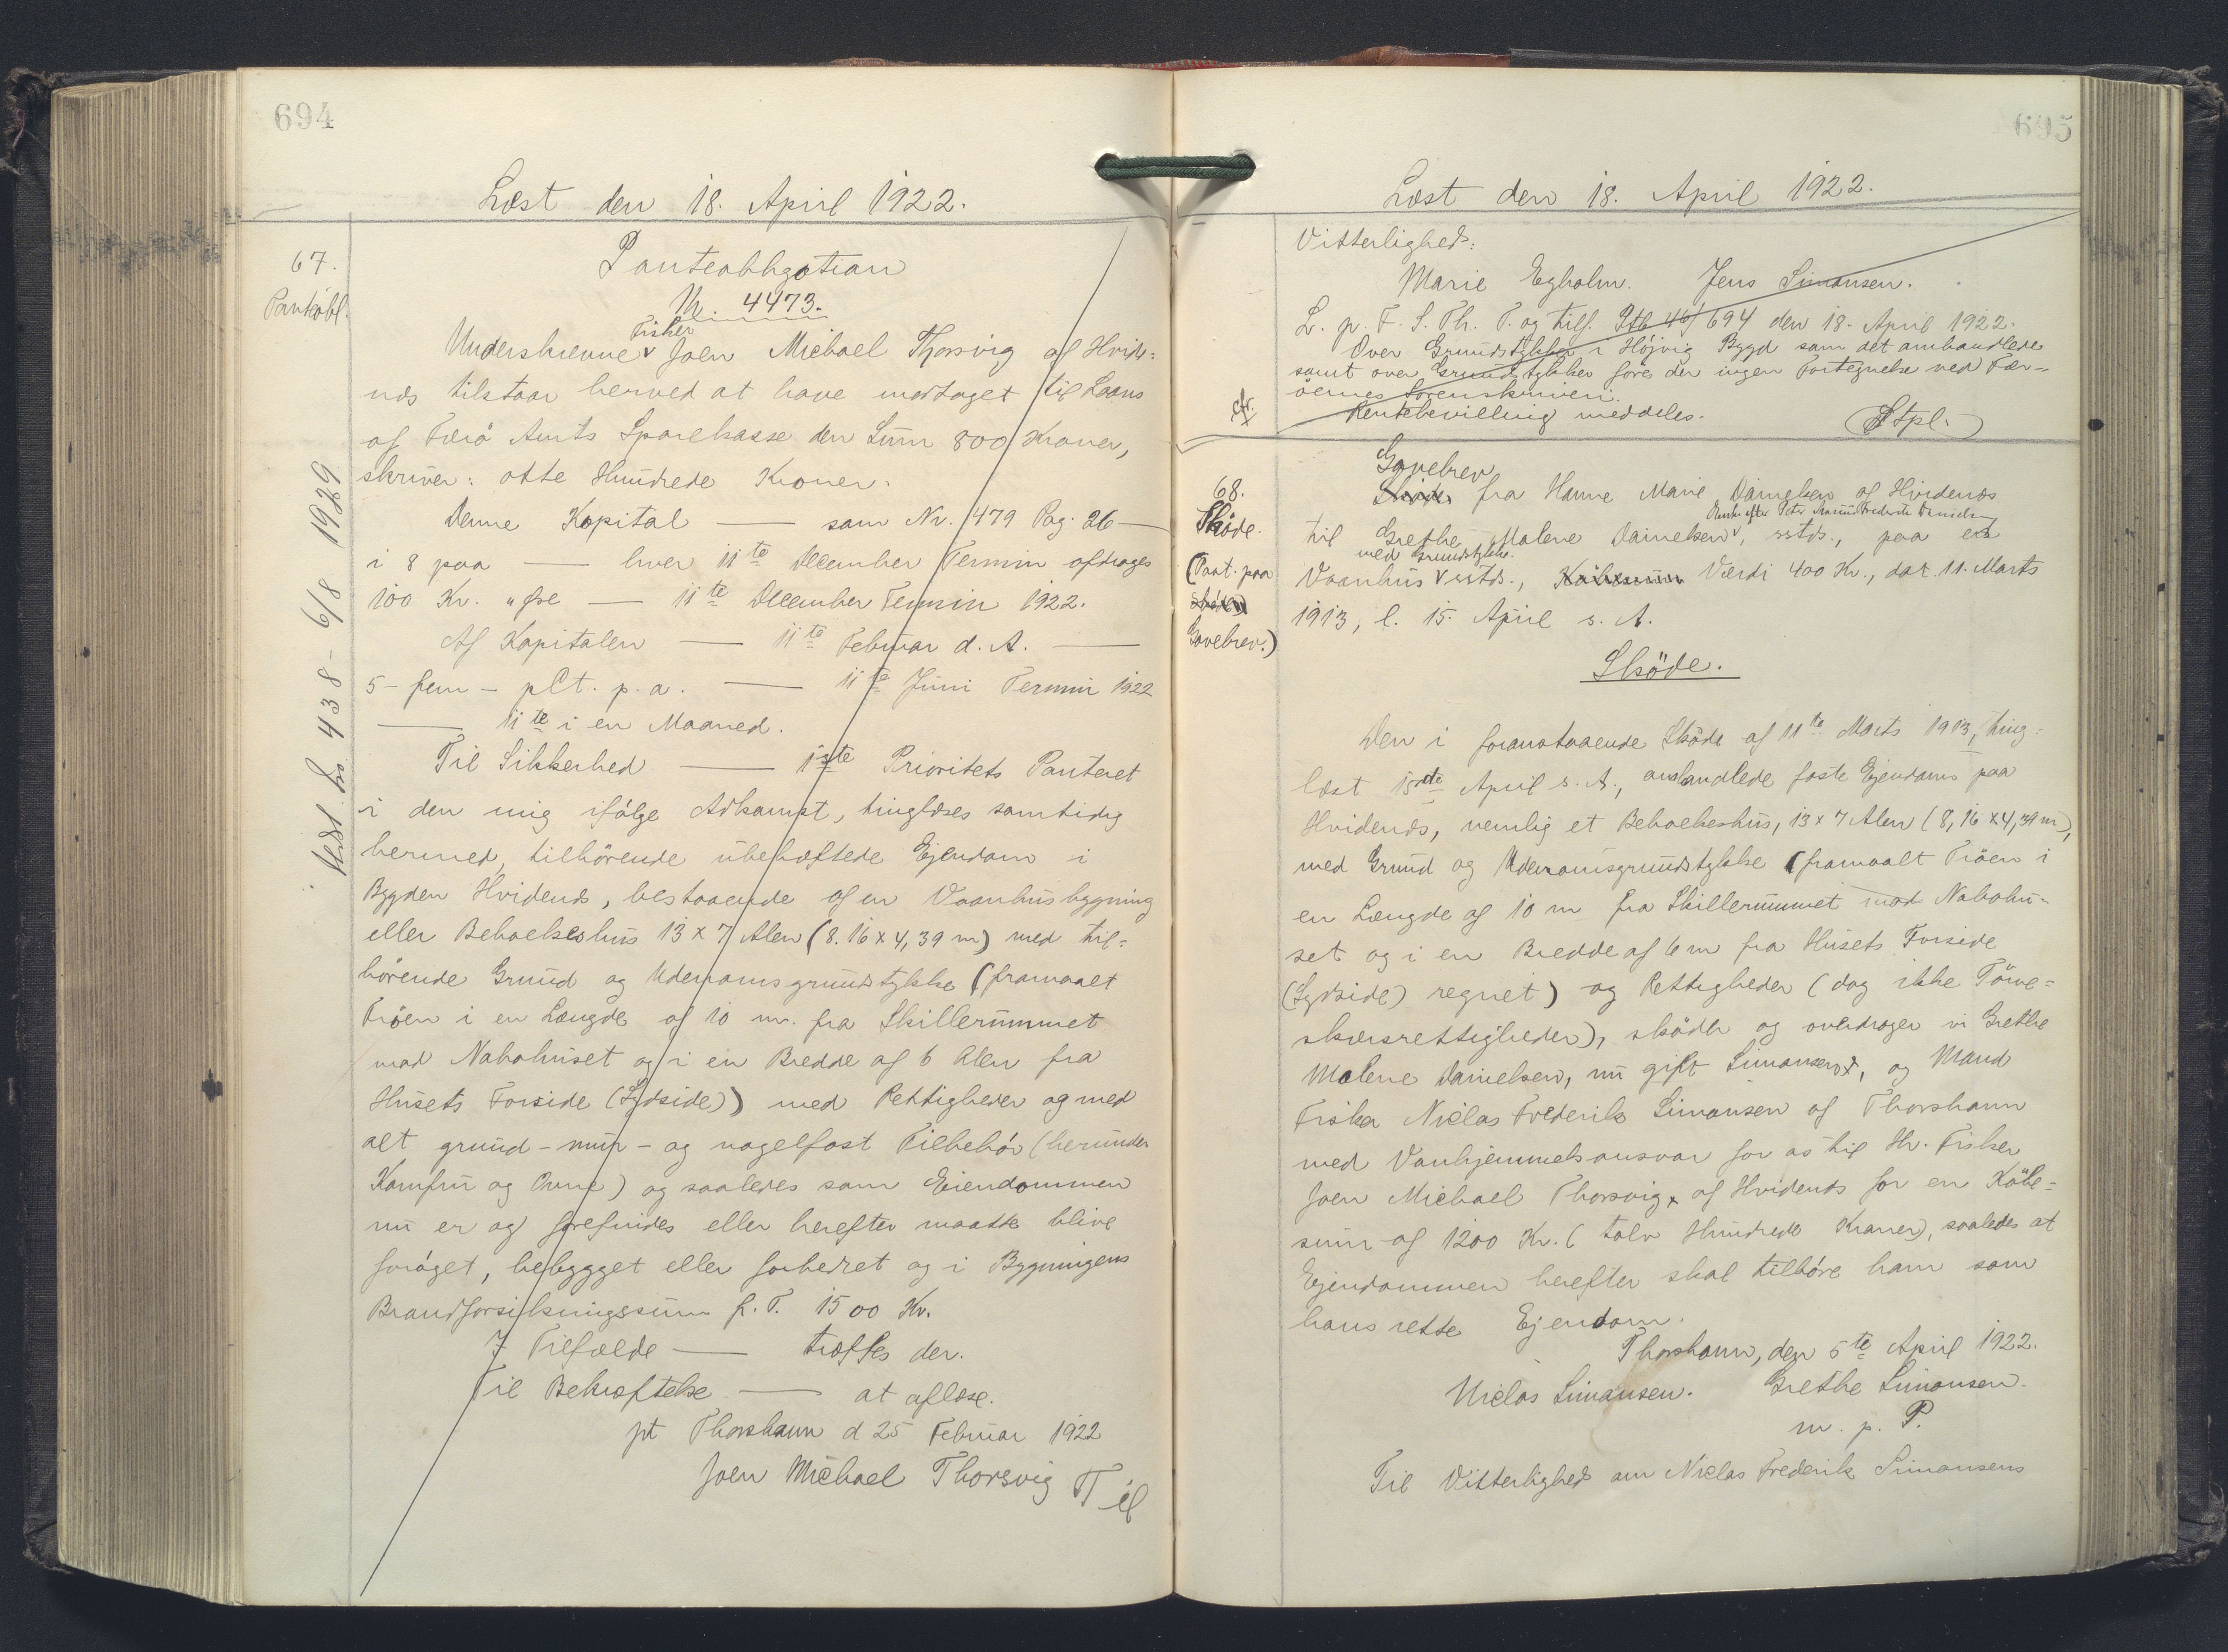 694
Læst den 18. April 1922.
67.
Pantobl.
Panteobligation
Nr. 4473.
Fisker
Underskrevne v Joen Michael Thorsvig af Hvide=
næs tilstaar herved at have modtaget til Laans
af Færö Amts Sparekasse den Sum 800 Kroner,
skriver: otte Hundrede Kroner.
Denne Kapital — som Nr. 479 Pag. 26 —
i 8 paa — hver 11te December Termin afdrages
100 Kr. " Øre — 11te December Termin 1922.
Af Kapitalen — 11te Februar d. A. —
5 - fem - pCt. p. a. — 11te Juni Termin 1922
— 11te i en Maaned.
Til Sikkerhed — 1ste Prioritets Panteret
i den mig ifölge Adkomst, tinglæses samtidig
hermed, tilhörende ubehæftede Ejendom i
Bygden Hvidenæs, bestaaende af en Vaanhusbygning
eller Beboelseshus 13 x 7 Alen (8.16 x 4,39 m) med til=
hörende Grund og Udenomsgrundstykke (framaalt
Tröen i en Længde af 10 m. fra Skillerummet
mod Nabohuset og i en Bredde af 6 Alen fra
Husets Forside (Sydside)) med Rettigheder og med
alt grund- mur- og nagelfast Tilbehör (herunder
Komfur og Ovne) og saaledes som Eiendommen
nu er og forefindes eller herefter maatte blive
foröget, bebygget eller forbedret og i Bygningens
Brandforsikringssum p. T. 1500 Kr.
I Tilfælde — træffes der.
Til Bekræftelse — at aflæse.
pt Thorshavn d 25 Februar 1922
Joen Michael Thorsvig
Til
438 - 6/8 1929
695
Læst den 18. April 1922.
Vitterlighed:
Marie Egholm. Jens Simonsen.
L. p. F. S. Th. T. og tilf. Ptb 46/694 den 18. April 1922.
Over Grundstykker i Höjvig Bygd som det omhandlede
samt over Grundstykkerföre der ingen Fortegnelse ved Fær=
öernes Sorenskriveri.
Rentebevilling meddeles.
(Stpl.)
cfr.
68.
Sköde.
(Paat. paa
Sköde
Gavebrev.)
Gavebrev
Sköde fra Hanne Marie Danielsen af Hvidenæs
Enke efter Peter Marius Frederik Daniels=
til Grethe Malene Danielsen v, sstds., paa et
med Grundstykke
Vaanhus v sstds., Köbesum Værdi 400 Kr., dat. 11. Marts
1913, l. 15. April s. A.
Sköde.
Den i foranstaaende Sköde af 11te Marts 1913, ting=
læst 15de April s. A., omhandlede faste Ejendom paa
Hvidenæs, nemlig et Beboelseshus, 13 x 7 Alen (8,16 x 4,39 m),
med Grund og Udenomsgrundstykke (framaalt Tröen i
en Længde af 10 m fra Skillerummet mod Nabohu=
set og i en Bredde af 6 m fra Husets Forside
(Sydside) regnet) og Rettigheder (dog ikke Törve=
skærsrettigheder), sköder og overdrager vi Grethe
Malene Danielsen, nu gift Simonsen, og Mand
Fisker Niclas Frederik Simonsen af Thorshavn
med Vanhjemmelsansvar for os til Hr. Fisker
Joen Michael Thorsvig af Hvidenæs for en Köbe=
sum af 1200 Kr. (tolv Hundrede Kroner), saaledes at
Ejendommen herefter skal tilhöre ham som
hans rette Ejendom.
Thorshavn, den 5te April 1922.
Niclas Simonsen. Grethe Simonsen.
m. p. P.
Til Vitterlighed om Niclas Frederik Simonsens